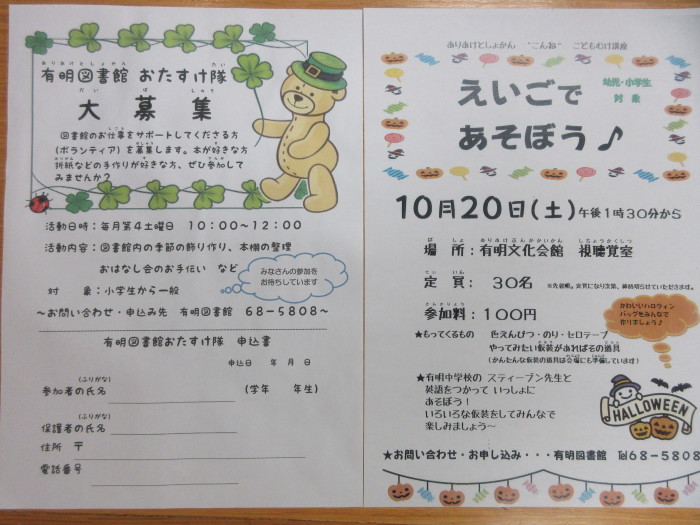 ありあけとしょかん
有明図書館 おたすけ隊
だい ぼ しゅう
大募集
図書館のお仕事をサポートしてくださる方
(ボランティア)を募集します。本が好きな方
折紙などの手作りが好きな方、ぜひ参加して
みませんか?
活動日時:毎月第4土曜日 10:00~12:00
活動内容:図書館内の季節の飾り作り、本棚の整理
おはなし会のお手伝い など
みなさんの参加を
お待ちしています
対 象:小学生から一般
~お問い合わせ・申込み先 有明図書館 68-5808~
有明図書館おたすけ隊 申込書
申込日 年 月 日
(ふりがな)
参加者の氏名 (学年 年生)
(ふりがな)
保護者の氏名
住所 〒
電話番号
ありあけとしょかん "こんね" こどもむけ講座
えいごで
幼児・小学生
対象
あそぼう♪
10月20日(土)午後1時30分から
ばしょ ありあけぶんかかいかん しちょうかくしつ
場 所:有明文化会館 視聴覚室
ていいん
定 員: 30名 ※先着順。定員になり次第、締め切らせていただきます。
さんかりょう
参加料:100円
かわいいハロウィン
バッグをみんなで
作りましょう♪
★もってくるもの 色えんぴつ・のり・セロテープ
やってみたい仮装があればその道具
(かんたんな仮装の道具は会場にも準備しています)
★有明中学校の スティーブン先生と
英語をつかって いっしょに
あそぼう!
いろいろな仮装をしてみんなで
楽しみましょう~
HALLOWEEN
★お問い合わせ・お申し込み・・・有明図書館 ℡68-5808